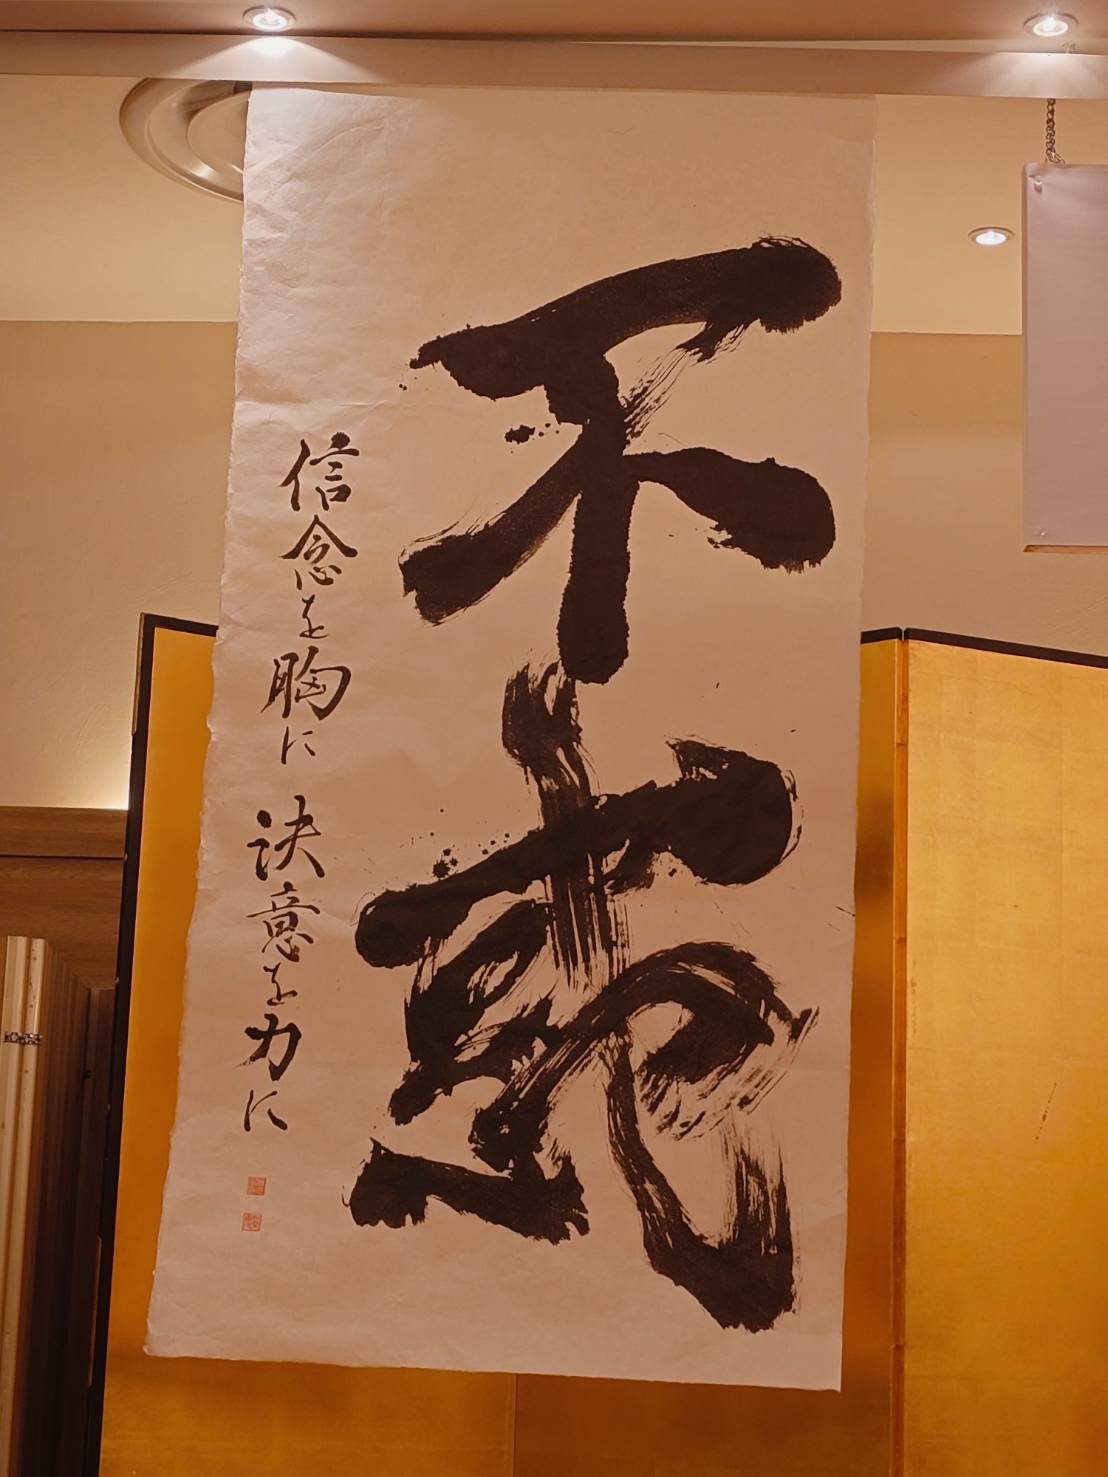 不
信念を胸に 決意を力に